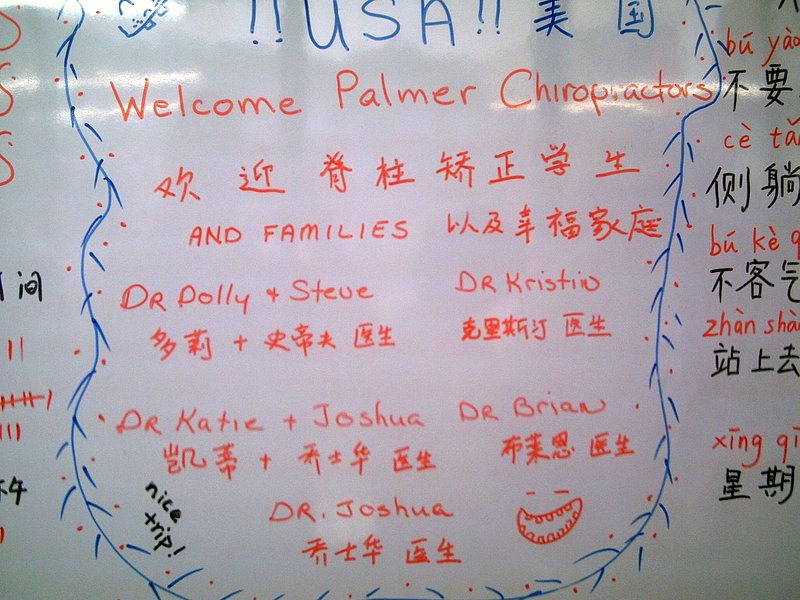 !!USA!! 美国
Welcome Palmer Chiropractors
欢迎脊柱矫正学生
AND FAMILIES 以及幸福家庭
DR Dolly + Steve
多莉 + 史帝夫 医生
DR Kristin
克里斯汀 医生
DR Katie + Joshua
凯蒂 + 乔士华 医生
DR Brian
布莱恩 医生
DR. Joshua
乔士华 医生
nice
trip!
间
bú yào
不要
cè tǎ
侧躺
bú kè q
不客气
zhàn shà
站上去
xīng qī
星期